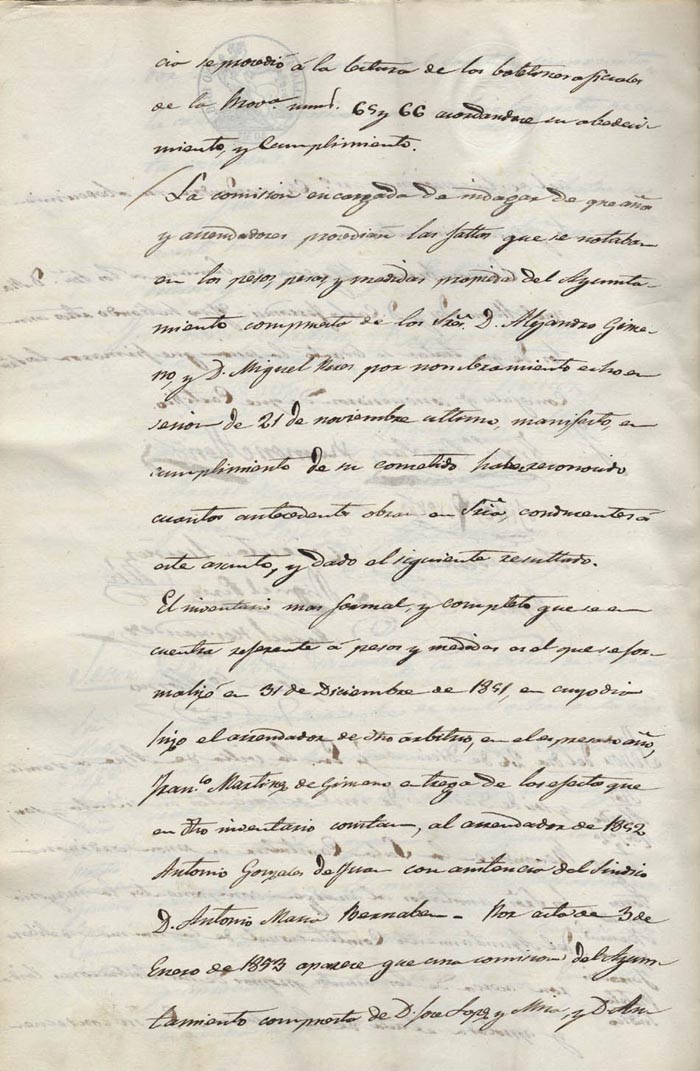 cia se procedió á la lectura de los boletines oficiales
de la Prova. nums. 65 y 66 acordandose su obedeci-
miento, y Cumplimiento.
La comision encargada de indagar de que años
y arrendadores procedian las faltas que se notaban
en los pesos, pesas, y medidas propiedad del Ayunta-
miento compuesta de los Sres. D. Alejandro Gime-
no, y D. Miguel por nombramiento echo en
sesion de 21 de noviembre ultimo, manifesto, en
cumplimiento de su cometido haber reconocido
cuantos antecedentes obran en Sria, conducentes á
este asunto, y dado el siguiente resultado.
El inventario mas formal, y completo que se en
cuentra referente á pesos y medidas es el que se for-
malizó en 31 de Diciembre de 1851, en cuyo dia
hizo el arrendador de dho arbitrio, en el espresado año,
Franco Martinez de Gimeno entrega de los efectos que
en dho inventario constan, al arrendador de 1852
Antonio Gonzales de Juan con asistencia del Sindico
D. Antonio Maria Bernabeu - Por acta de 3 de
Enero de 1853 aparece que una comision del Ayun
tamiento compuesta de D. Jose Lopez y Mira, y D. An